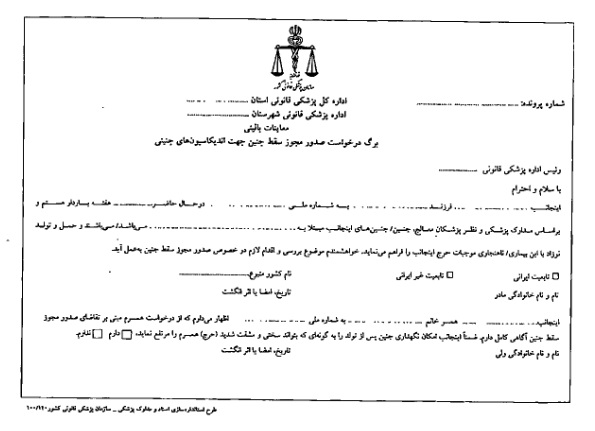 قوه قضائیه
سازمان پزشکی قانونی کشور
اداره کل پزشکی قانونی استان ....................
شماره پرونده: ..............................
اداره پزشکی قانونی شهرستان ....................
معاینات بالینی
برگ درخواست صدور مجوز سقط جنین جهت اندیکاسیون‌های جنینی
رئیس اداره پزشکی قانونی ....................
با سلام و احترام
اینجانب .................... فرزند .................... به شماره ملی .................... درحال حاضر .................... هفته باردار هستم و
براساس مدارک پزشکی و نظر پزشکان معالج، جنین/ جنین‌های اینجانب مبتلا به .................... می‌باشد/ می‌باشند و حمل و تولد
نوزاد با این بیماری/ ناهنجاری موجبات حرج اینجانب را فراهم می‌نماید. خواهشمندم موضوع بررسی و اقدام لازم در خصوص صدور مجوز سقط جنین به‌عمل آید.
☐ تابعیت ایرانی ☐ تابعیت غیر ایرانی نام کشور متبوع ....................
نام و نام خانوادگی مادر تاریخ، امضا یا اثر انگشت
اینجانب .................... همسر خانم .................... به شماره ملی .................... اظهار می‌دارم که از درخواست همسرم مبنی بر تقاضای صدور مجوز
سقط جنین آگاهی کامل دارم. ضمناً اینجانب امکان نگهداری جنین پس از تولد را به گونه‌ای که بتواند سختی و مشقت شدید (حرج) همسرم را مرتفع نماید، ☐ دارم ☐ ندارم.
نام و نام خانوادگی ولی تاریخ، امضا یا اثر انگشت
طرح استانداردسازی اسناد و مدارک پزشکی _ سازمان پزشکی قانونی کشور